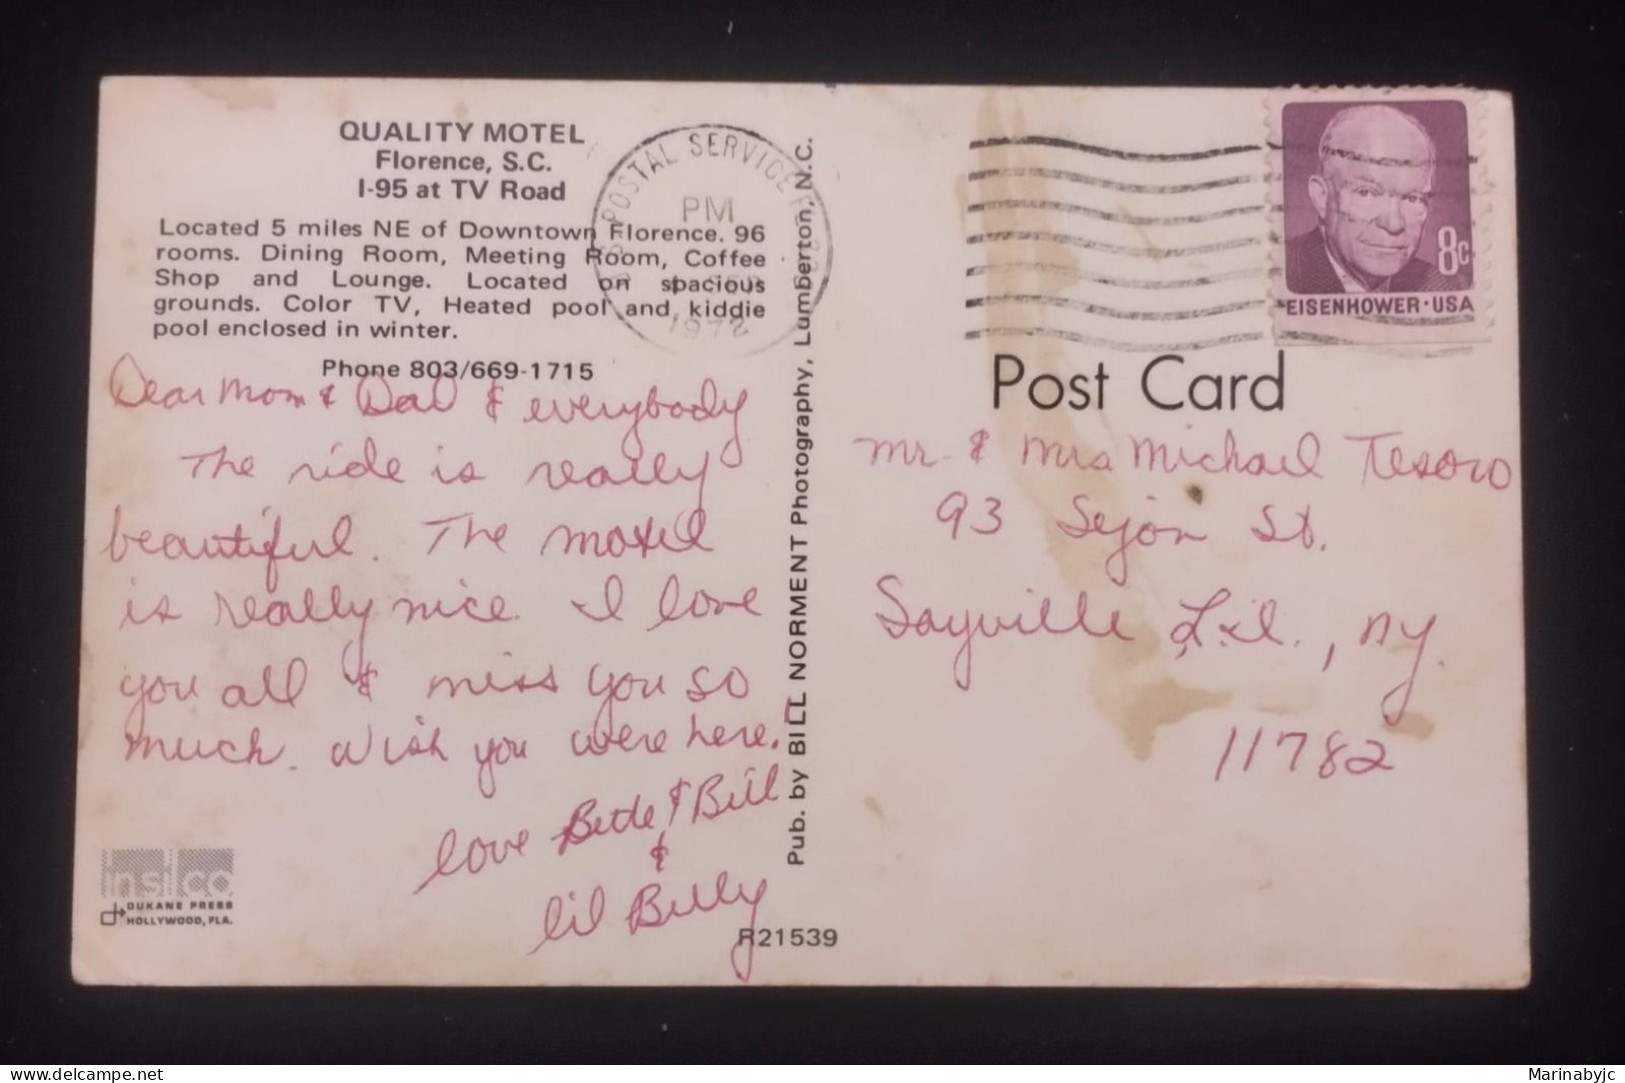 QUALITY MOTEL
Florence, S.C.
I-95 at TV Road
Located 5 miles NE of Downtown Florence. 96
rooms. Dining Room, Meeting Room, Coffee
Shop and Lounge. Located on spacious
grounds. Color TV, Heated pool and kiddie
pool enclosed in winter.
Phone 803/669-1715
Dear Mom & Dad & everybody
The ride is really
beautiful. The motel
is really nice. I love
you all & miss you so
much. Wish you were here.
love & Bill
&
lil Billy
DUKANE PRESS
HOLLYWOOD, FLA.
R21539
Pub. by BILL NORMENT Photography, Lumberton, N.C.
POSTAL SERVICE
PM
1972
8c
EISENHOWER·USA
Post Card
Mr. & Mrs Michael Tesoro
93 Sejon St.
Sayville L.I., NY.
11782
Marinabyjc